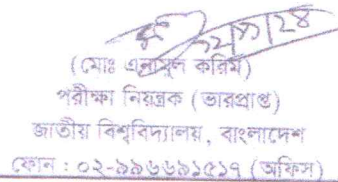 ১২/১১/২৪
(মোঃ এনামুল করিম)
পরীক্ষা নিয়ন্ত্রক (ভারপ্রাপ্ত)
জাতীয় বিশ্ববিদ্যালয়, বাংলাদেশ
ফোন : ০২-৯৯৬৬৯১৫১৭ (অফিস)